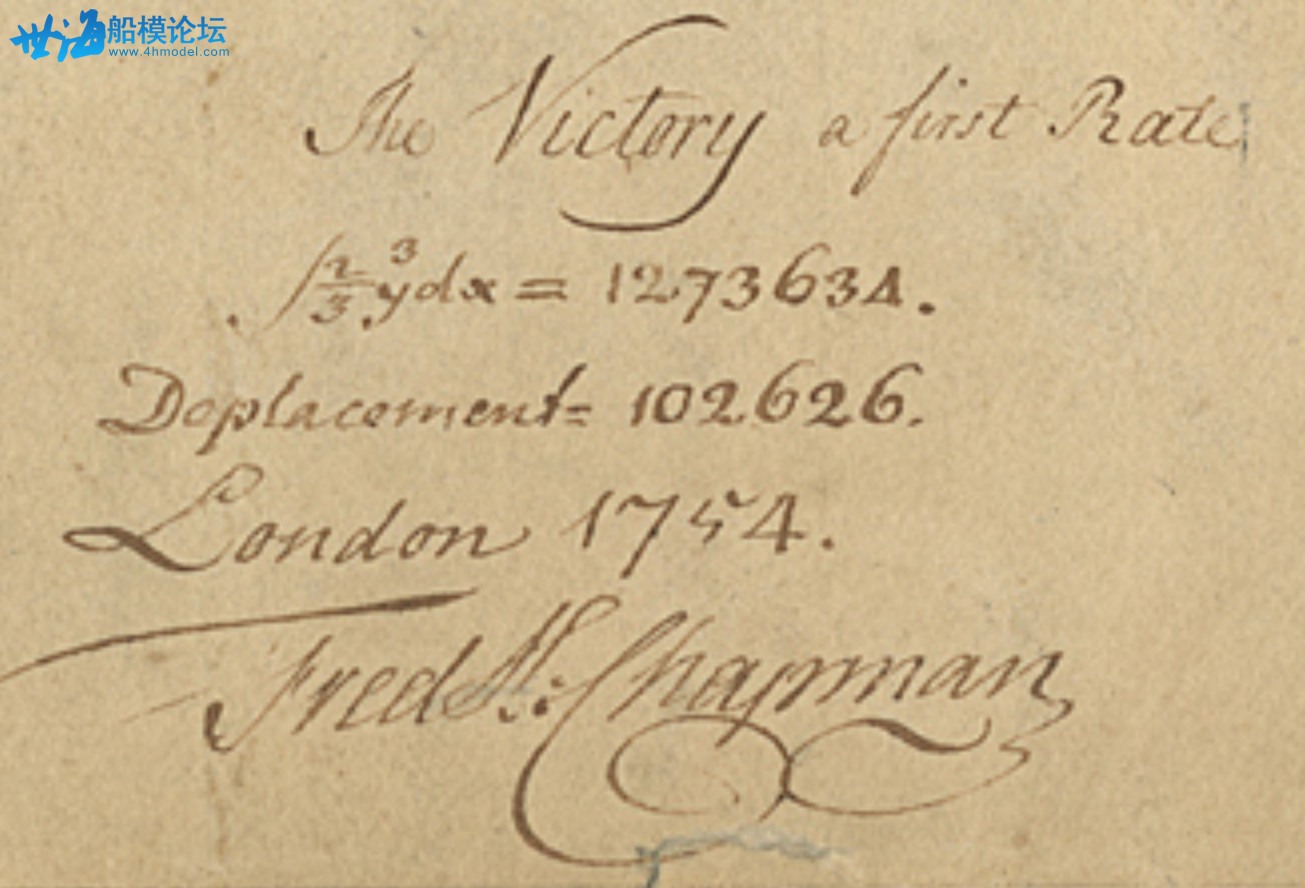 世海船模论坛
www.4hmodel.com
The Victory a first Rate
∫⅔y³dx = 1273634.
Deplacement = 102626.
London 1754.
Fred H: Chapman